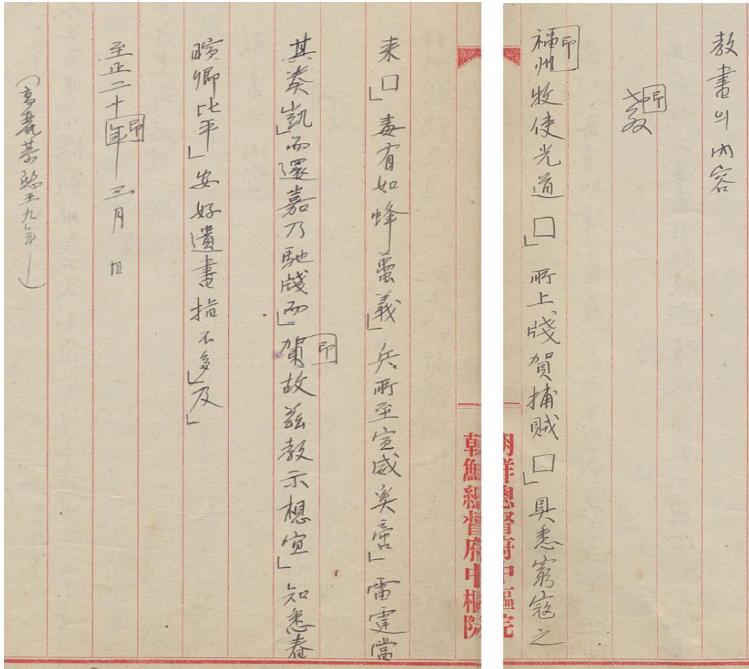 教書의內容
教印
福州牧使光道□」所上牋賀捕賊□」具悉窮寇之
印
朝鮮總督府中樞院
朝鮮總督府中樞院
来□」毒有如蜂蠆義」兵所至宣威奚啻」雷霆當
其奏」凱而還嘉乃馳牋而」賀故玆教示想宜」知悉春
印
暄卿比平」安好遣書指不多」及」
至正二十年 三月 日
印
(高麗恭愍王九年)